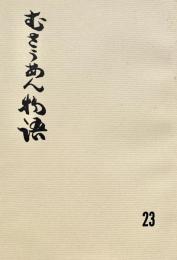 むさうあん物語
23